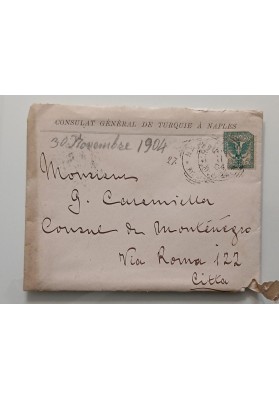 CONSULAT GÉNÉRAL DE TURQUIE À NAPLES
30 Novembre 1904
27
Monsieur
G. Caramiella
Consul du Monténégro
Via Roma 122
Città